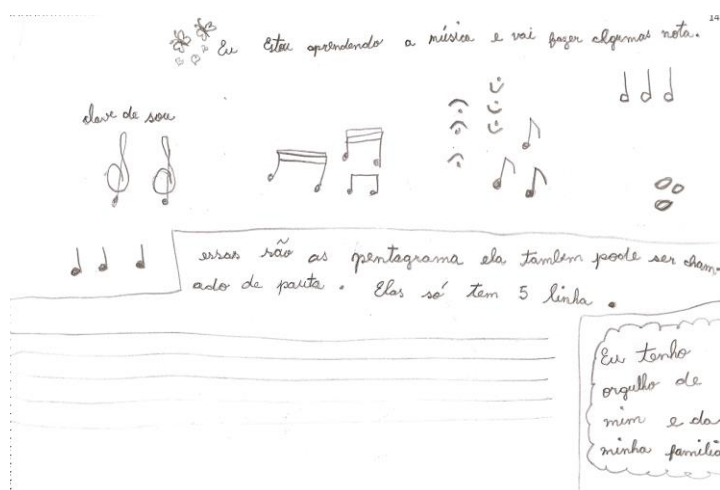 14
Eu Estou aprendendo a música e vai fazer algumas nota.
clave de sou
essas são as pentagrama ela tambem pode ser cham-
ado de pauta. Elas só tem 5 linha.
Eu tenho
orgulho de
mim e da
minha familia